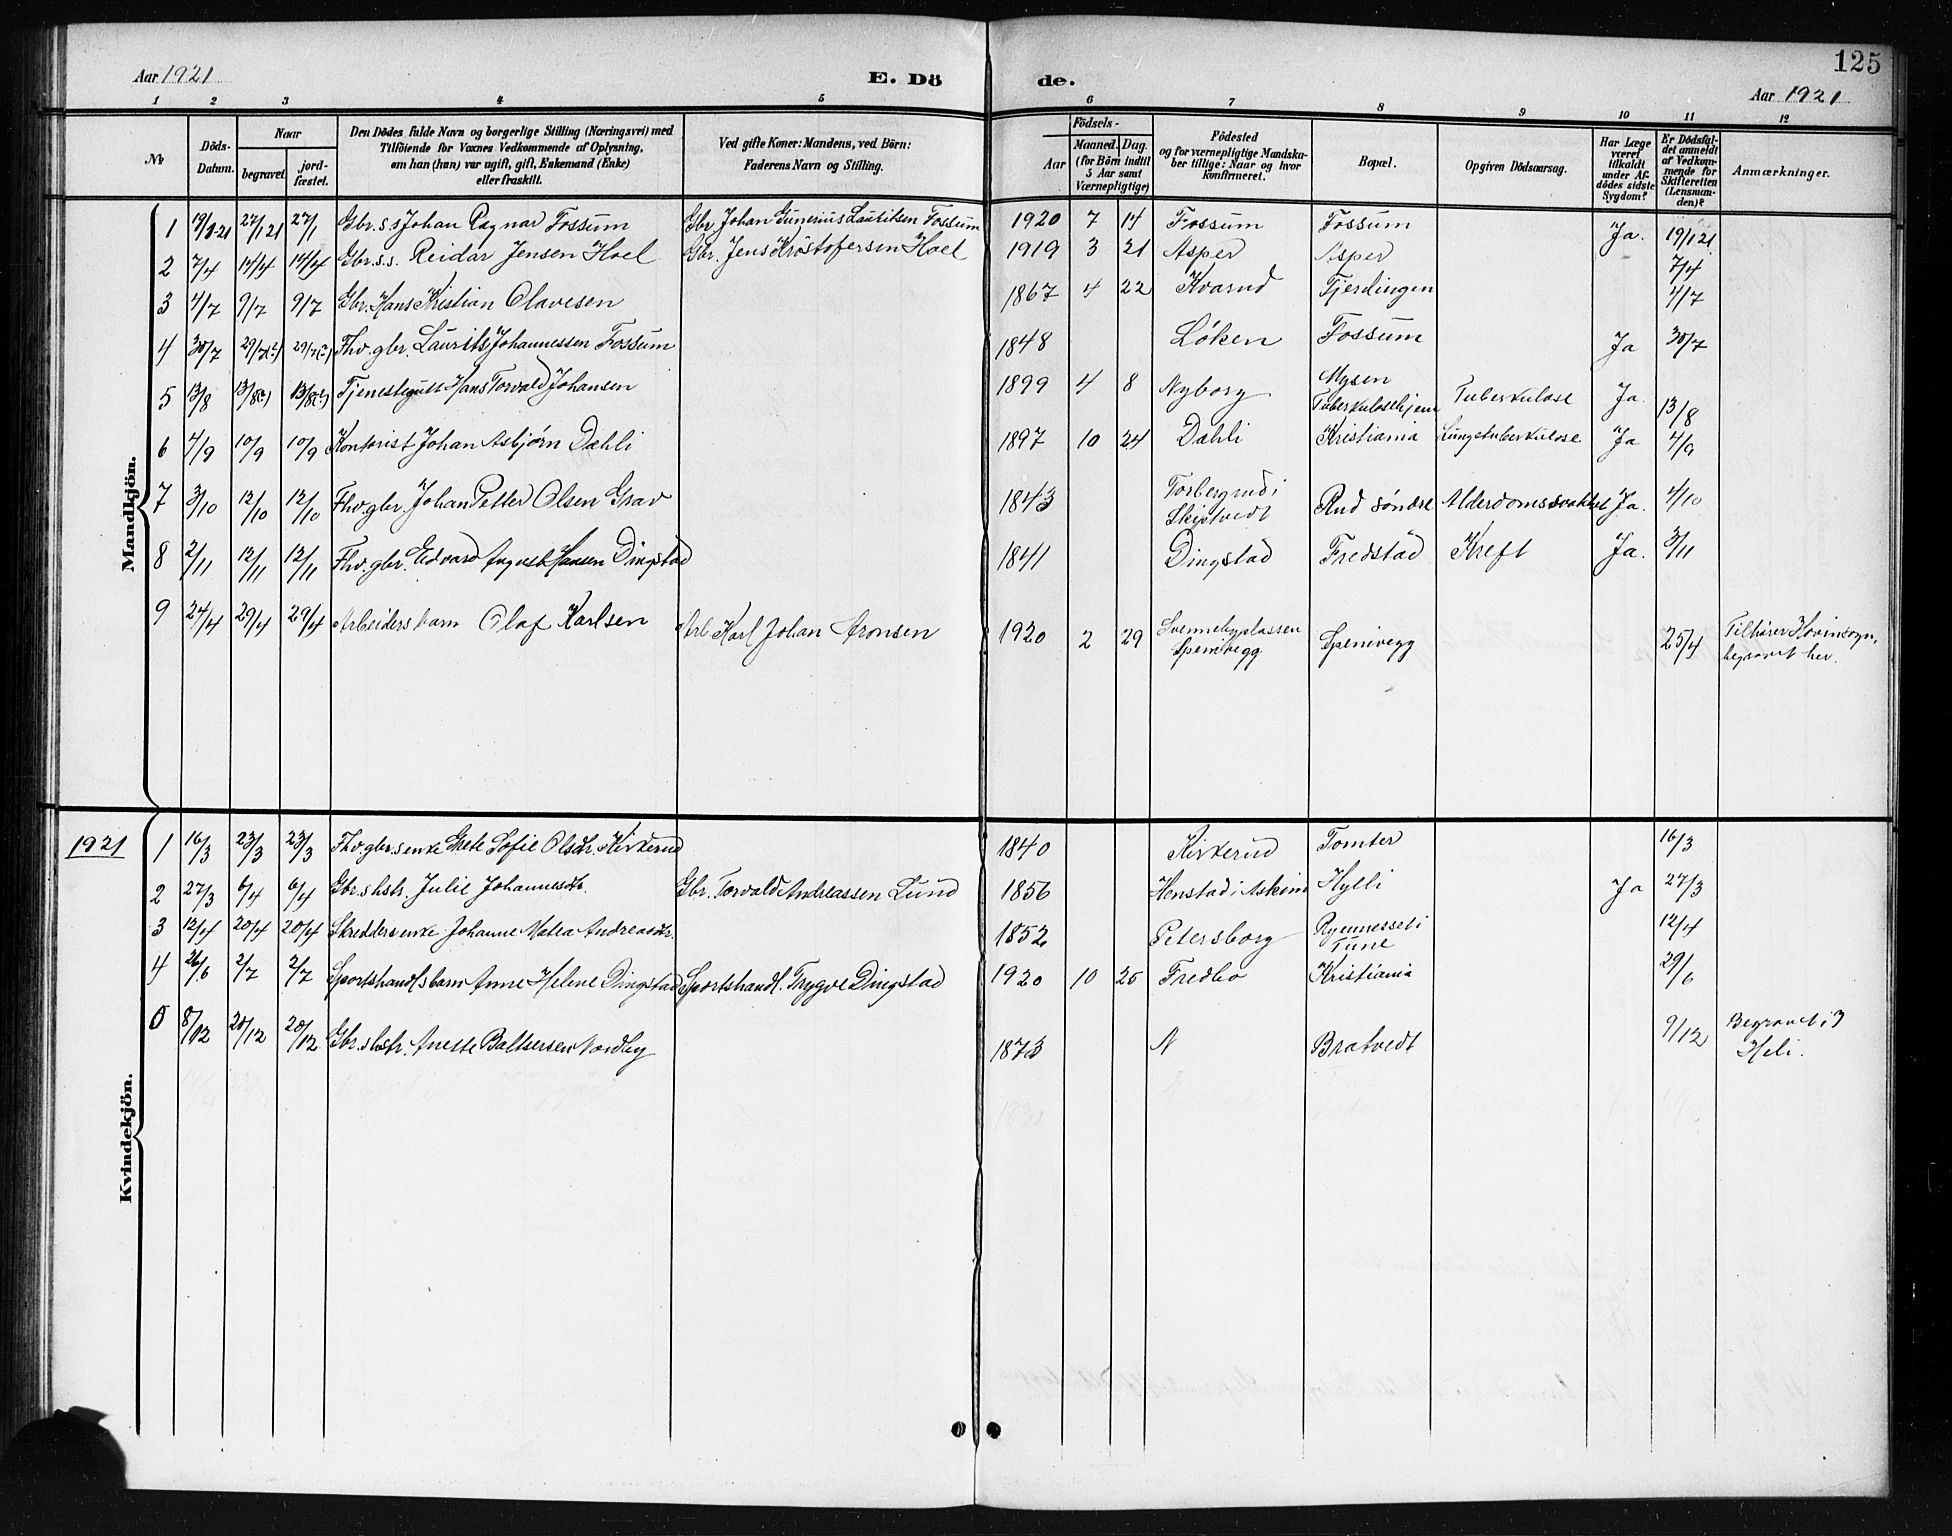 125
Aar 1921 E. Dö de. Aar 1921
1 2 3 4 5 6 7 8 9 10 11 12
No
Döds-Datum.
Naar
begravet.
jord-fæstet.
Den Dödes fulde Navn og borgerlige Stilling (Næringsvei) med
Tilföiende for Voxnes Vedkommende af Oplysning,
om han (hun) var ugift, gift, Enkemand (Enke)
eller fraskilt.
Ved gifte Koner: Mandens, ved Börn:
Faderens Navn og Stilling.
Födsels-
Aar
Maaned. Dag.
(for Börn indtil
5 Aar samt
Værnepligtige)
Födested
og for værnepligtige Mandska-
ber tillige: Naar og hvor
konfirmeret.
Bopæl.
Opgiven Dödsaarsag.
Har Læge
været
tilkaldt
under Af-
dödes sidste
Sygdom?
Er Dödsfal-
det anmeldt
af Vedkom-
mende for
Skifteretten
(Lensman-
den)?
Anmærkninger.
Mandkjön.
1 19/1-21 27/1 21 27/1 Gbr.s.s Johan Ragnar Fossum Gbr. Johan Gunerius Lauritsen Fossum 1920 7 14 Fossum Fossum Ja. 19/1 21
2 7/4 14/4 14/4 Gbr.s.s. Reidar Jensen Hoel Gbr. Jens Kristofersen Hoel 1919 3 21 Asper Asper 7/4
3 4/7 9/7 9/7 Gbr. Hans Kristian Olavesen 1867 4 22 Kvarud Fjerdingen 4/7
4 30/7 29/7(?) 29/7(?) Fhv. gbr. Laurits Johannessen Fossum 1848 Løken Fossum Ja 30/7
5 13/8 13/8(?) 13/8(?) Tjenestegutt Hans Torvald Johansen 1899 4 8 Nyborg Mysen Tuberkulosehjem Tuberkulose Ja 13/8
6 4/9 10/9 10/9 Kontorist Johan Asbjørn Dahli 1897 10 24 Dahli Kristiania Lungetuberkulose Ja 4/9
7 3/10 12/10 12/10 Fhv. gbr. Johan Petter Olsen Grav 1843 Torbergrud i Skiptvedt Rud søndre Alderdomssvakhet Ja. 4/10
8 2/11 12/11 12/11 Fhv. gbr. Edvard August Hansen Dingstad 1841 Dingstad Fredstad Kreft Ja. 3/11
9 24/4 29/4 29/4 Arbeiders barn Olaf Karlsen Arb. Karl Johan Aronsen 1920 2 29 Svennebyplassen Spenivegg Spenivegg 25/4 Tilhører Hovinsogn, begravet her.
1921
Kvindekjön.
1 16/3 23/3 23/3 Fhv. gbr.s enke Grete Sofie Olsdtr. Kirkerud 1840 Kirkerud Tomter 16/3
2 27/3 6/4 6/4 Gbr.s hstr. Julie Johannesdtr. Gbr. Torvald Andreassen Lund 1856 Henstad i Askim Hylli Ja 27/3
3 12/4 20/4 20/4 Skredders enke Johanne Matea Andreasdtr. 1852 Petersborg i Tune 12/4
4 26/6 2/7 2/7 Sportshandls barn Anne Helene Dingstad Sportshandl. Trygve Dingstad 1920 10 25 Fredbo Kristiania 29/6
5 8/12 20/12 20/12 Gbr.s hstr. Anette Baltsersen Nordby 1873 N Bratvedt 9/12 Begravet i Heli.